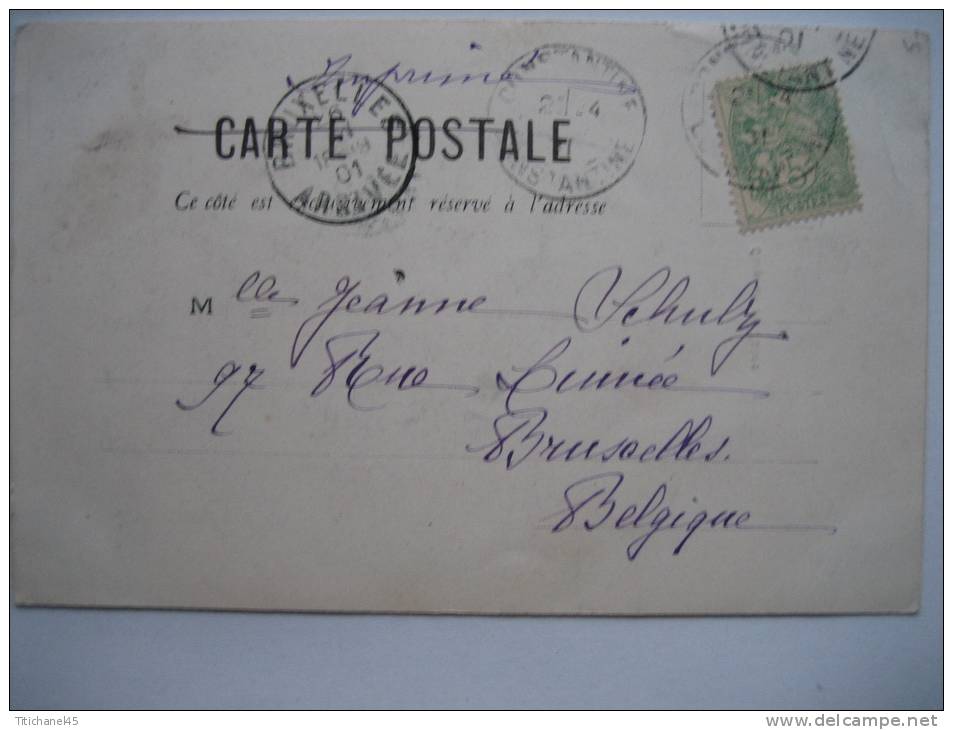 Imprimé
CARTE POSTALE
Ce côté est exclusivement réservé à l'adresse
BRUXELLES
01
ARRIVÉE
CONSTANTINE
21 -4
CONSTANTINE
01
POSTES
M lle Jeanne Schulz
97 Rue Linnée
Bruxelles.
Belgique
Ttichane45
www.delcampe.net